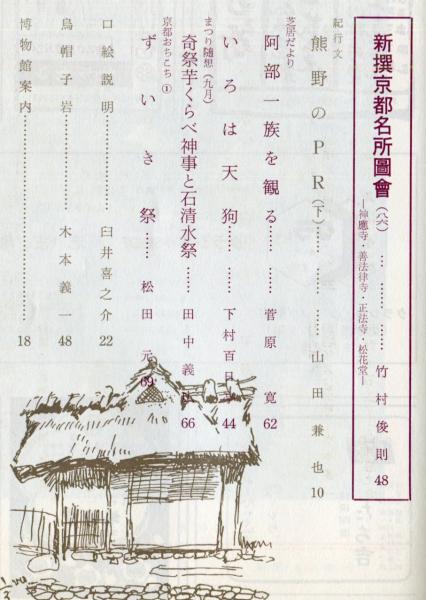 新撰京都名所圖會（八六）………竹村俊則48
―神應寺・善法律寺・正法寺・松花堂―
紀行文
熊野のPR（下）………山田兼也10
芝居だより
阿部一族を観る………菅原寛62
いろは天狗………下村百日44
まつり随想（九月）
奇祭芋くらべ神事と石清水祭……田中義66
京都おちこち①
ずいき祭……松田元69
口絵説明………臼井喜之介22
烏帽子岩………木本義一48
博物館案内………18